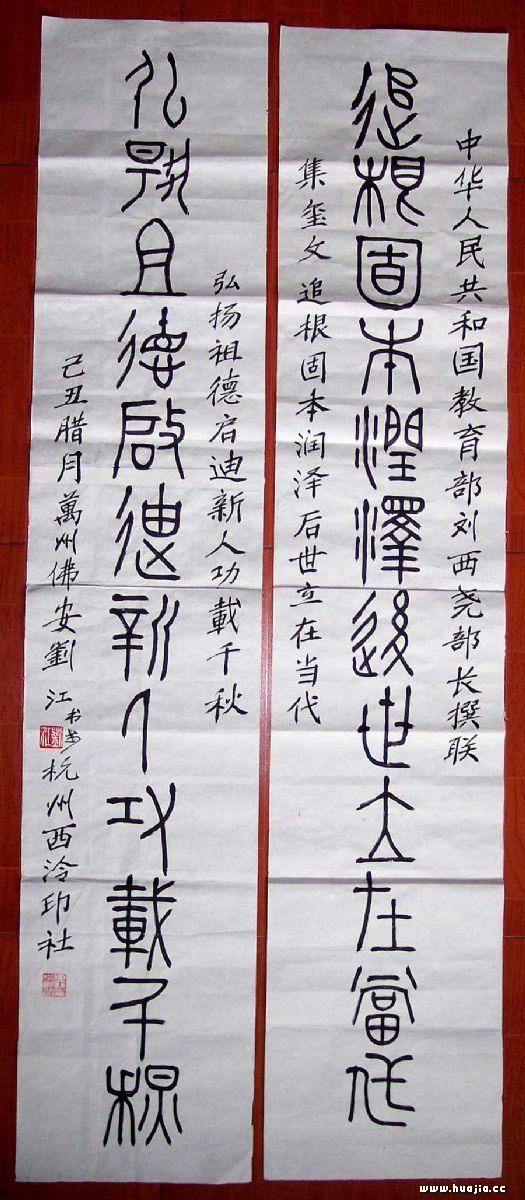 中华人民共和国教育部刘西尧部长撰联
追根固本潤澤後世立在當代
集玺文追根固本润泽后世立在当代
弘扬祖德启迪新人功載千秋
弘揚且德啟迪新人功載千秋
己丑腊月萬州佛安劉江书於杭州西泠印社
www.huajia.cc